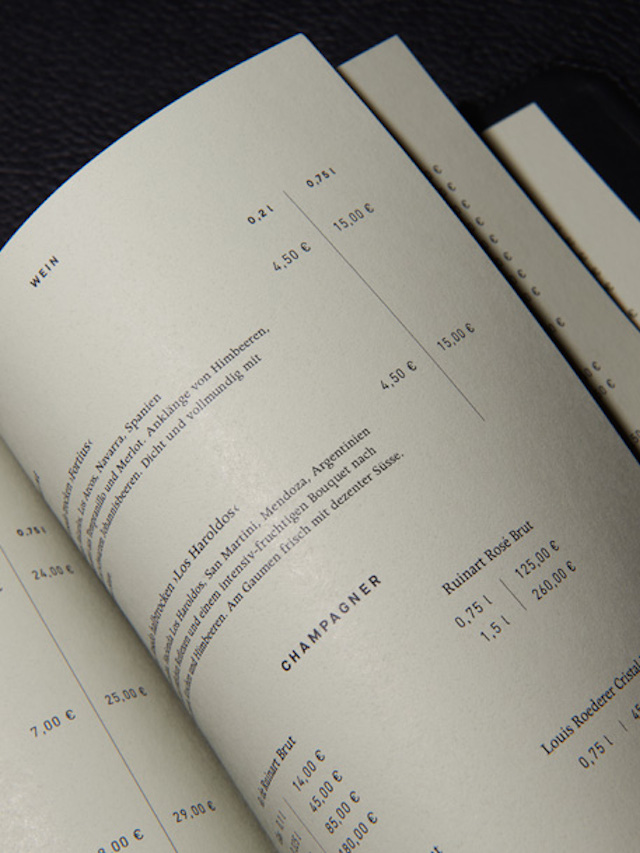 WEIN
0,2 l 0,75 l
4,50 € 15,00 €
trocken ›Fortius‹
Los Arcos, Navarra, Spanien
Tempranillo und Merlot. Anklänge von Himbeeren,
Johannisbeeren. Dicht und vollmundig mit
4,50 € 15,00 €
›Los Haroldos‹
Hacienda Los Haroldos, San Martini, Mendoza, Argentinien
und einem intensiv-fruchtigen Bouquet nach
und Himbeeren. Am Gaumen frisch mit dezenter Süsse.
CHAMPAGNER
Ruinart Brut
14,00 €
45,00 €
85,00 €
180,00 €
Ruinart Rosé Brut
0,75 l 125,00 €
1,5 l 260,00 €
Louis Roederer Cristal
0,75 l
0,75 l
24,00 €
7,00 € 25,00 €
29,00 €
€
€
€
€
€
€
€
€
€